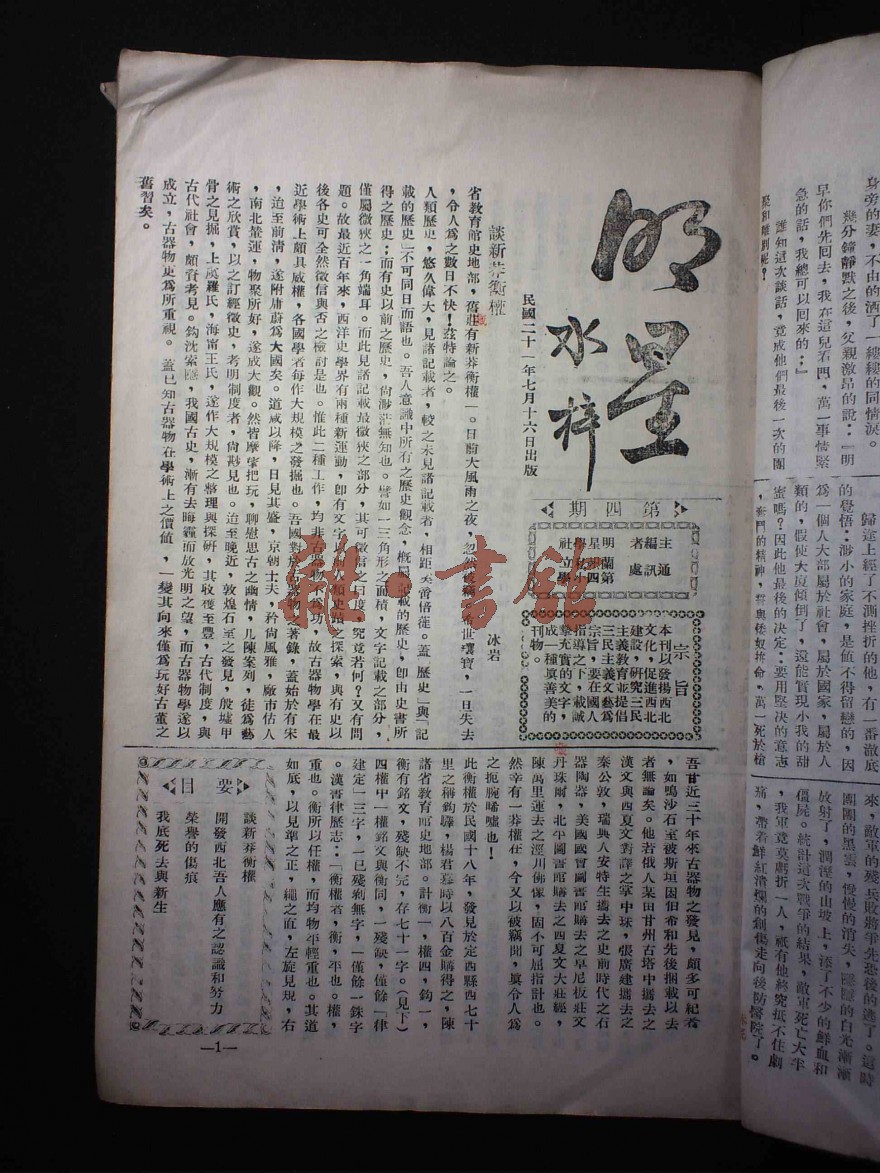 明星
水梓
民國二十一年七月十六日出版
第四期
主編者
明星社
通訊處
蘭州
第四
小學
宗旨
本刊以發揚西北
文化,促進西北
建設,研究三民
主義教育並提倡
三民主義文藝爲
宗旨,要在國人
指導之下,載誠
摯充實的文字,
成一種眞善美的
刊物。
談新莽衡權
冰岩
省教育館史地部,舊莊有新莽衡權」。日前大風雨之夜,忽然被竊,希世瓌寶,一旦失去
,令人爲之數日不快!茲特論之。
人類歷史,悠久偉大,見諸記載者,較之未見諸記載者,相距奚啻倍蓰。蓋「歷史」與「記
載的歷史」不可同日而語也。吾人意識中所有之歷史觀念,概屬記載的歷史,卽由史書所
得之歷史;而有史以前之歷史,尙渺茫無知也。譬如一三角形之面積,文字記載之部分,
僅屬微狹之一角端耳。而此見諸記載最微狹之部分,其可徵信之曰度,究竟若何?又有問
題。故最近百年來,西洋史學界有兩種新運動,卽有文字以前人類史蹟之探索,與有史以
後各史可全然徵信與否之檢討是也。惟此二種工作,均非古器物不爲功,故古器物學在最
近學術上頗具威權,各國學者每作大規模之發掘也。吾國對於古器物之著錄,蓋始於有宋
,迨至前清,遂附庸蔚爲大國矣。道咸以降,日見其盛,京朝士夫,矜尙風雅,廠市估人
,南北輦運,物聚所好,遂成大觀。然皆摩挲把玩,聊慰思古之幽情,几陳案列,徒爲藝
術之欣賞,以之訂經徵史,考明制度者,尙尠見也。迨至晚近,敦煌石室之發見,殷墟甲
骨之見掘,上虞羅氏,海甯王氏,遂作大規模之整理與探硏,其收獲至豐,古代制度,與
古代社會,頗資考見。鈎沈索隱,我國古史,漸有去晦霾而放光明之望,而古器物學遂以
成立,古器物更爲所重視。蓋已知古器物在學術上之價値,一變其向來僅爲玩好古董之
舊習矣。
吾甘近三十年來古器物之發見,頗多可紀者
,如鳴沙石室被斯坦因伯希和先後捆載以去
者無論矣。他若俄人某因甘州古塔中攜去之
漢文與西夏文對譯之掌中珠,張廣建攜去之
秦公敦,瑞典人安特生攜去之史前時代之石
器陶器,美國國會圖書館購去之卓尼板莊文
丹珠爾,北平圖書館購去之西夏文大莊經,
陳萬里運去之涇川佛像,固不可屈指計也。
然幸有一莽權在,今又以被竊聞,眞令人爲
之扼腕唏噓也!
此衡權於民國十八年,發見於定西縣西七十
里之稱鈎驛,楊君慕時以八百金購得之,陳
諸省教育館史地部。計衡一,權四,鈎一,
衡有銘文,殘缺不完,存七十一字。(見下)
四權中一權銘文與衡同,一殘缺,僅餘「律
建定」三字,一已殘剥無字,一僅餘一銖字
。漢書律歷志:「衡權者,衡,平也。權,
重也。衡所以任權,而均物平輕重也。其道
如底,以見準之正,繩之直,左旋見規,右
要目
談新莽衡權
開發西北吾人應有之認識和努力
榮譽的傷痕
我底死去與新生
—1—
身旁的妻,不由的洒了一縷縷的同情淚。
幾分鐘靜默之後,父親激昂的說:「明
早你們先回去,我在這兒看門,萬一事情緊
急的話,我總可以回來的;」
誰知這次談話,竟成他們最後一次的團
聚和離別呢?
歸途上,經了不測挫折的他,有一番澈底
的覺悟:渺小的家庭,是值不得留戀的,因
爲一個人大部屬於社會,屬於國家,屬於人
類的,假使大廈傾倒了,還能實現小我的甜
蜜嗎?因此他最後的決定:要用堅決的意志
,奮鬥的精神,誓與倭奴拚命,萬一死於槍
來,敵軍的殘兵敗將爭先恐後的逃了。這時
團團的黑雲,慢慢的消失,隱隱的白光漸漸
放射了,濶溼的山坡上,添了不少的鮮血和
僵屍。統計這次戰爭的結果,敵軍死亡大半
,我軍竟莫虧折一人,祇有他終究抵不住劇
痛,帶着鮮紅燦爛的創傷走向後防醫院了。